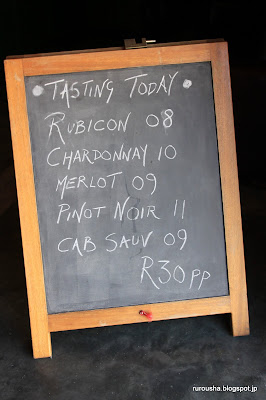 • TASTING TODAY •
RUBICON 08
CHARDONNAY 10
MERLOT 09
PINOT NOIR 11
CAB SAUV 09
R30 PP
rurousha.blogspot.jp